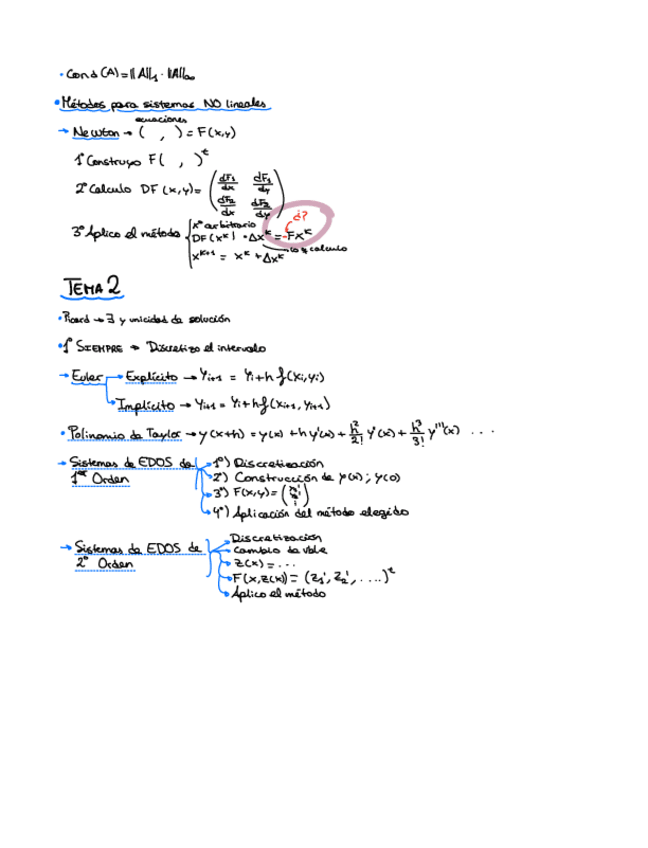 • Cond (A) = ||A||₁ · ||A||∞
• Métodos para sistemas NO lineales
ecuaciones
→ Newton → ( , ) = F(x,y)
1º Construyo F( , )ᵗ
2º Calculo DF (x,y) = (dF₁/dx dF₁/dy dF₂/dx dF₂/dy)
¿?
3º Aplico el método { x⁰ arbitrario
DF(xᴷ) · Δxᴷ = -Fxᴷ
xᴷ⁺¹ = xᴷ + Δxᴷ
calculo
TEMA 2
• Picard → ∃ y unicidad de solución
• 1º SIEMPRE → Discretizo el intervalo
→ Euler → Explícito → Yᵢ₊₁ = Yᵢ + h f(xᵢ, yᵢ)
Implícito → Yᵢ₊₁ = Yᵢ + h f(xᵢ₊₁, yᵢ₊₁)
• Polinomio de Taylor → y(x+h) = y(x) + h y'(x) + h²/2! y''(x) + h³/3! y'''(x) ...
→ Sistemas de EDOS de 1ᵉʳ Orden
1º) Discretización
2º) Construcción de y(x) ; y(0)
3º) F(x,y) =
4º) Aplicación del método elegido
→ Sistemas de EDOS de 2º Orden
Discretización
Cambio de vble
Z(x) = ...
F(x,Z(x)) = (Z₁', Z₂', ....)ᵗ
Aplico el método